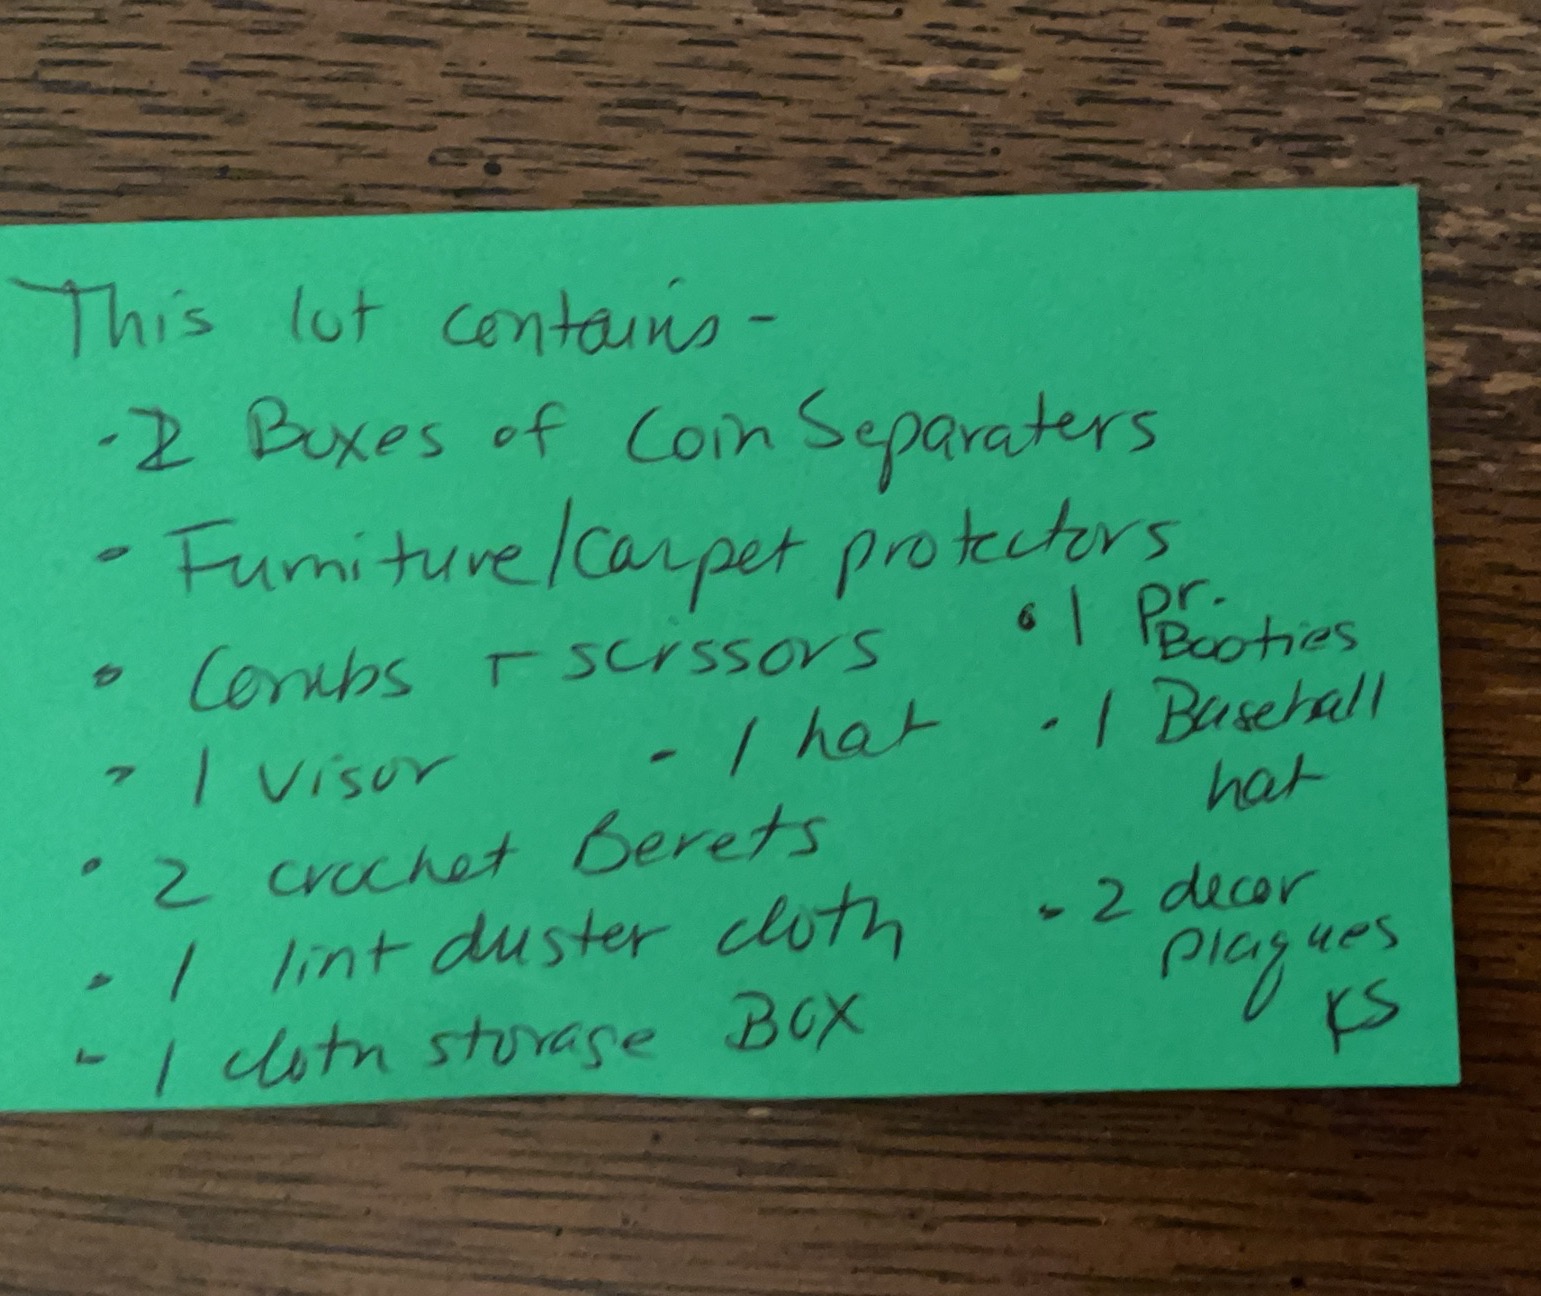 This lot contains -
· 2 Boxes of Coin Separaters
· Furniture/Carpet protectors
· Combs + scissors
· 1 pr. Booties
· 1 visor
- 1 hat
· 1 Baseball hat
· 2 crochet Berets
· 1 lint duster cloth
- 2 decor plaques
- 1 cloth storage Box
KS